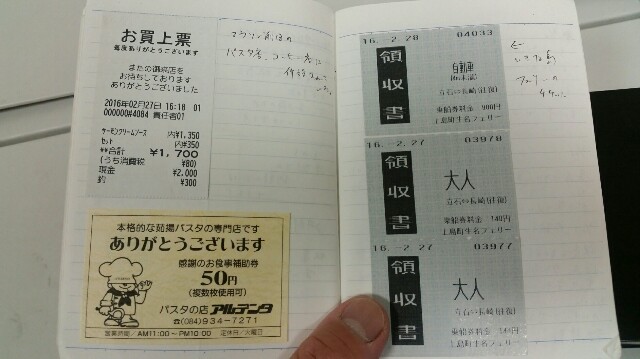 お買上票
毎度ありがとうございます
またの御来店を
お待ちしております
ありがとうございました
2016年02月27日 16:18 01
000000#4084 責任者01
サーモンクリームソース 内¥1,350
セット 内¥350
**合計 ¥1,700
(うち消費税 ¥80)
現金 ¥2,000
釣 ¥300
本格的な茹揚パスタの専門店です
ありがとうございます
感謝のお食事補助券
50円
(複数枚使用可)
パスタの店 アルデンテ
☎(084)934-7271
営業時間/AM11:00~PM10:00 定休日/火曜日
マラソン前日の
パスタ屋、コーヒー
16.-2.28 04033
領収書
自動車
立石⇔長崎(往復)
乗船券料金
上島町生名フェリー
16.-2.27 03978
領収書
大人
立石⇔長崎(往復)
乗船券料金 140円
上島町生名フェリー
16.-2.27 03977
領収書
大人
立石⇔長崎(往復)
乗船券料金 140円
上島町生名フェリー
←
フェリーの